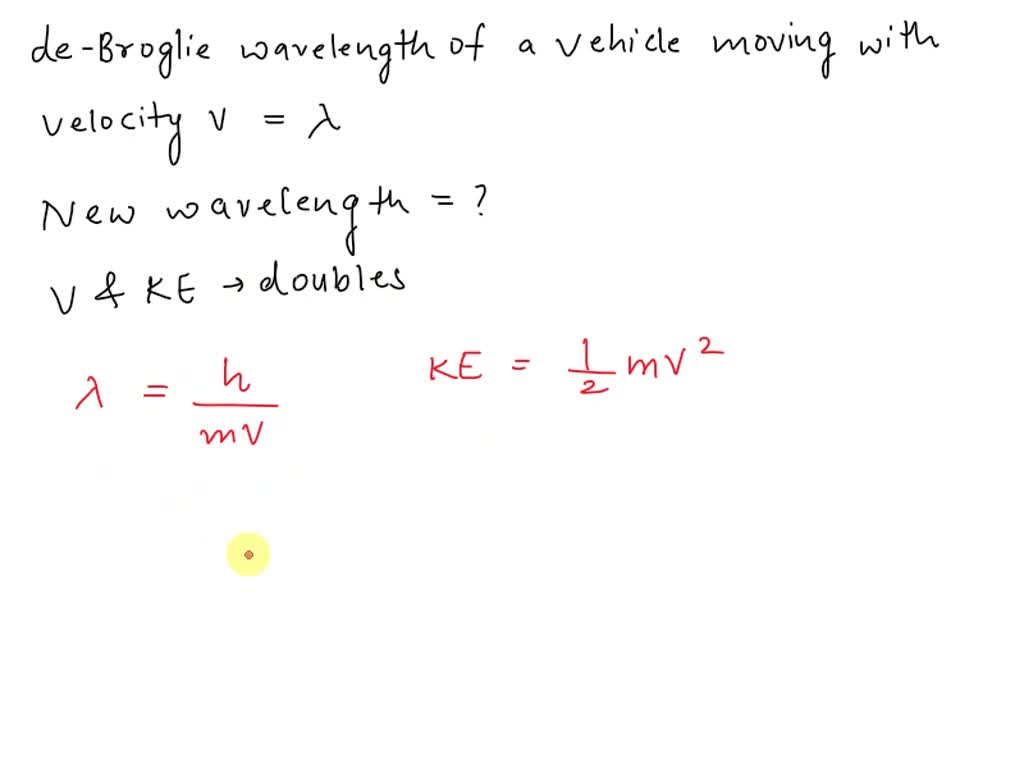 de-Broglie wavelength of a vehicle moving with
velocity v = λ
New wavelength = ?
V & KE → doubles
λ = h / mv    KE = 1/2 mv²